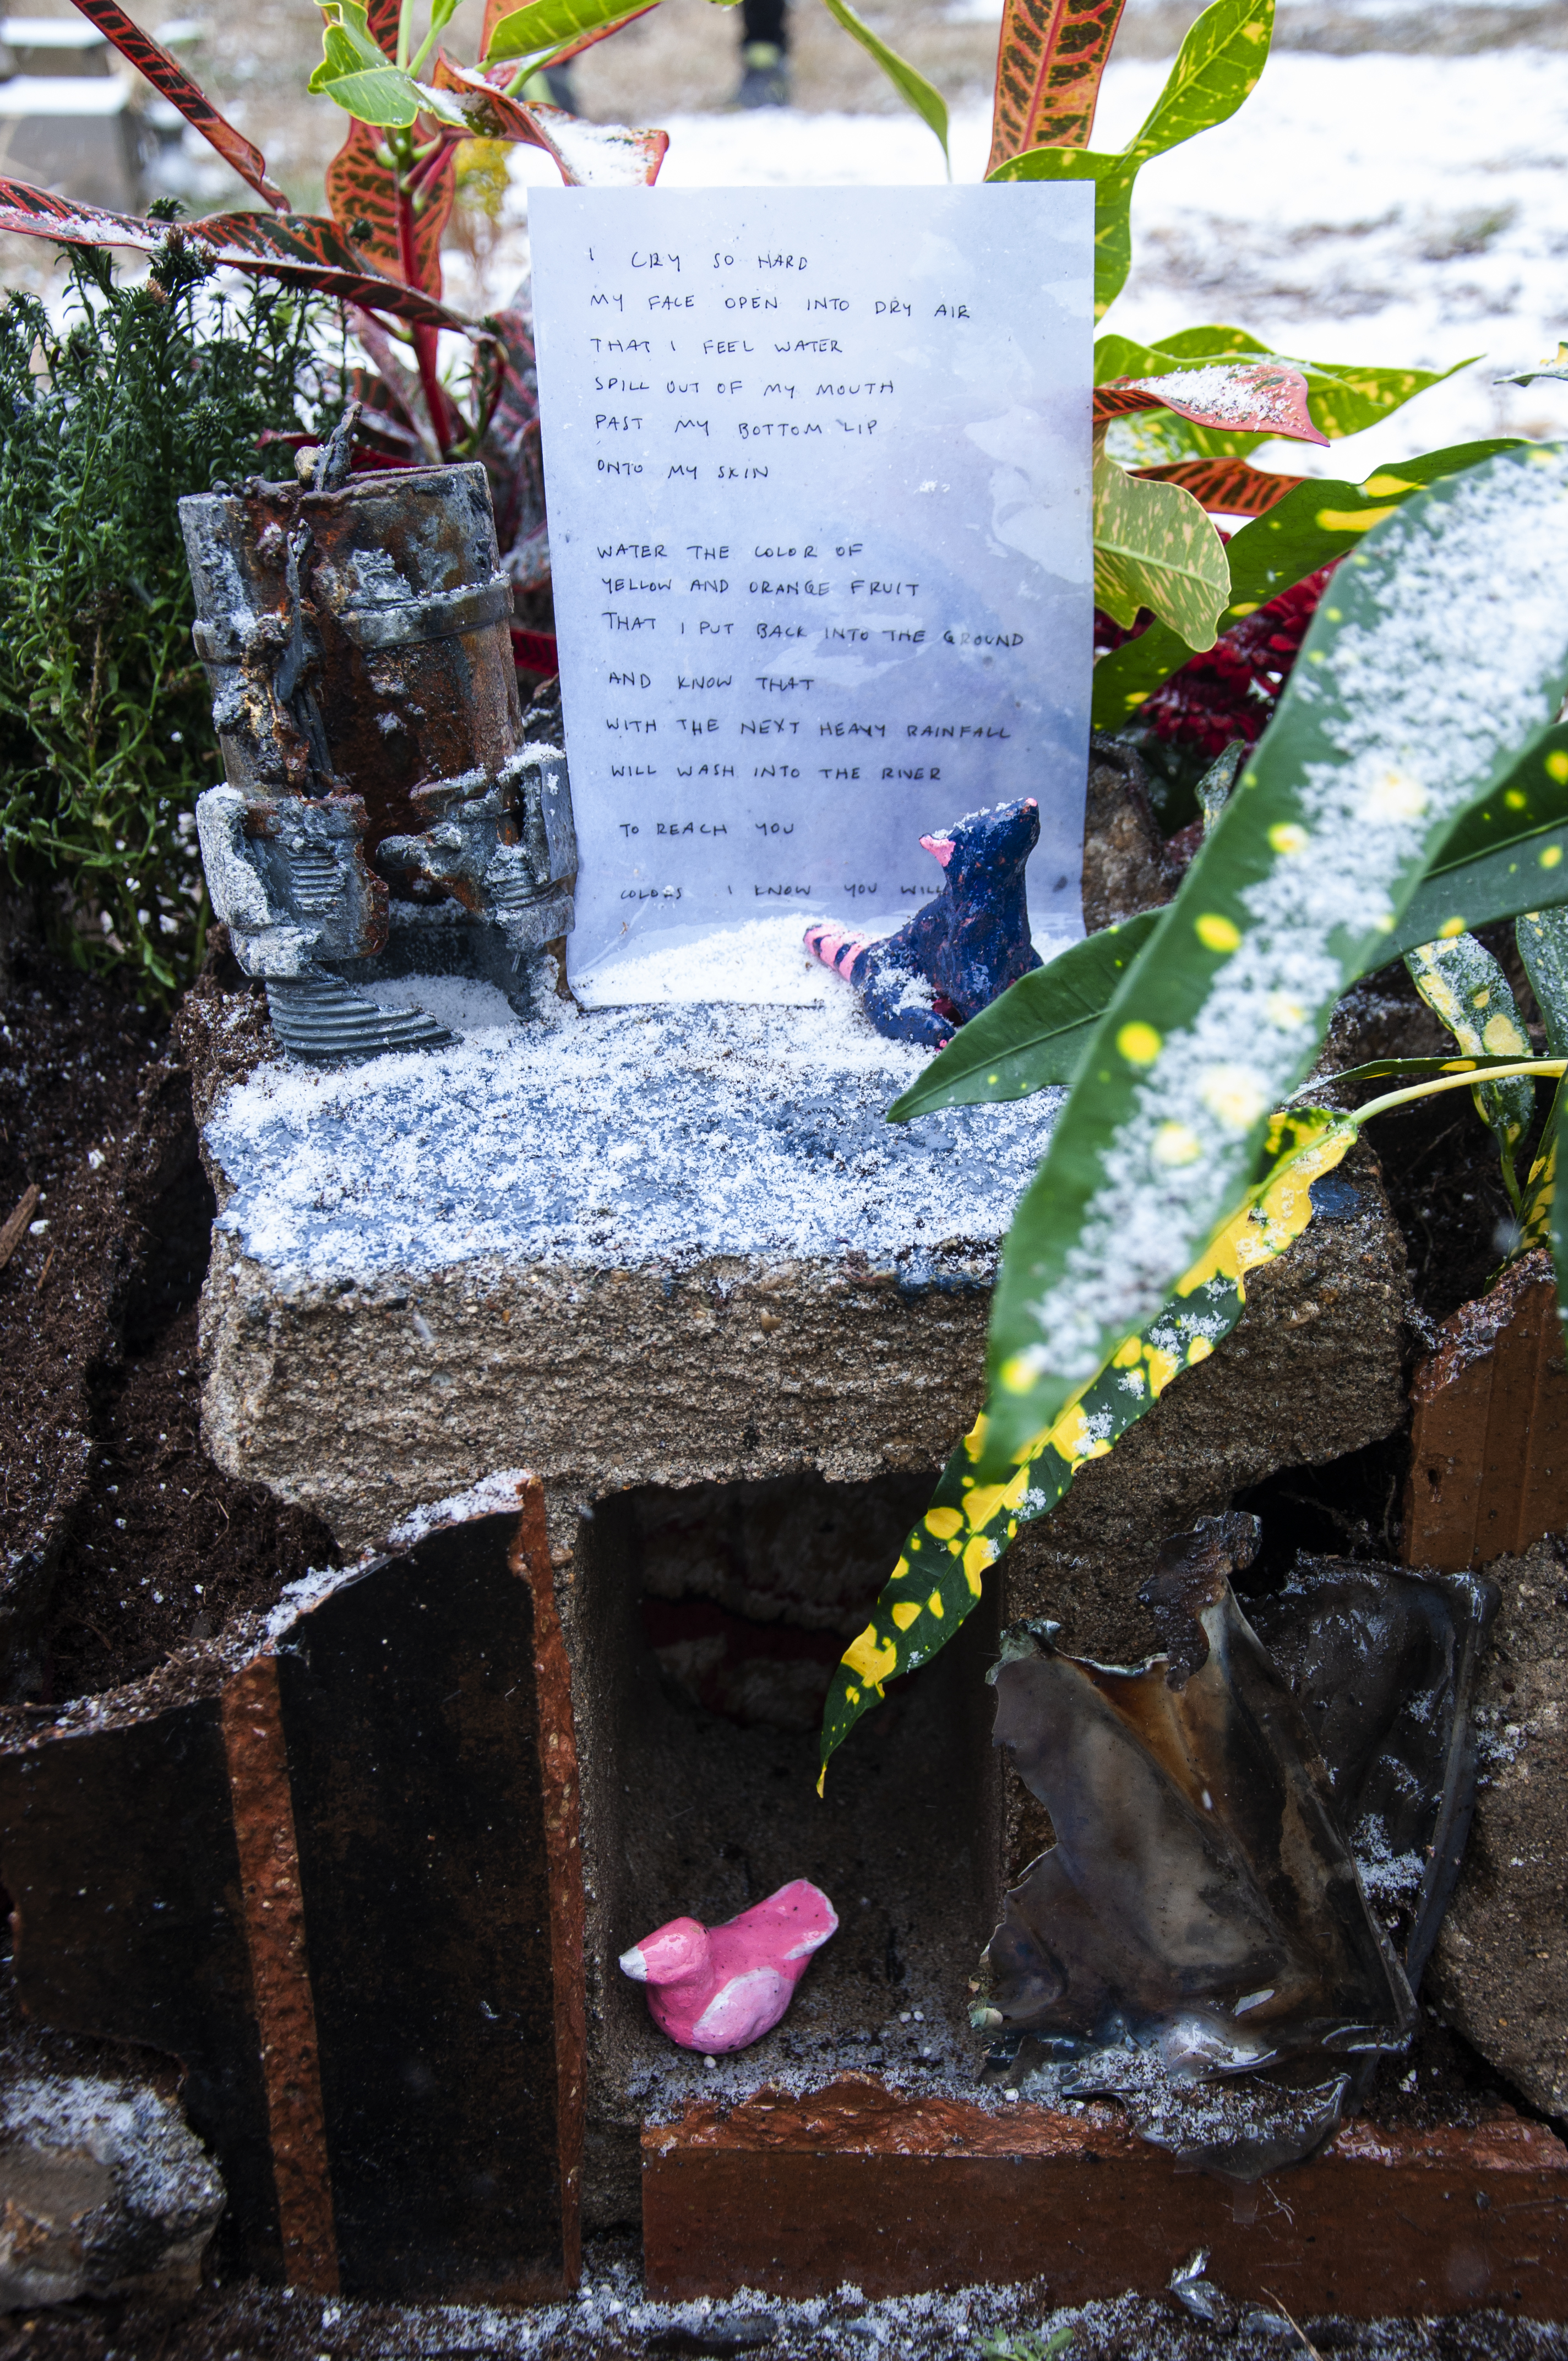 I CRY SO HARD
MY FACE OPEN INTO DRY AIR
THAT I FEEL WATER
SPILL OUT OF MY MOUTH
PAST MY BOTTOM LIP
ONTO MY SKIN
WATER THE COLOR OF
YELLOW AND ORANGE FRUIT
THAT I PUT BACK INTO THE GROUND
AND KNOW THAT
WITH THE NEXT HEAVY RAINFALL
WILL WASH INTO THE RIVER
TO REACH YOU
COLORS I KNOW YOU WILL